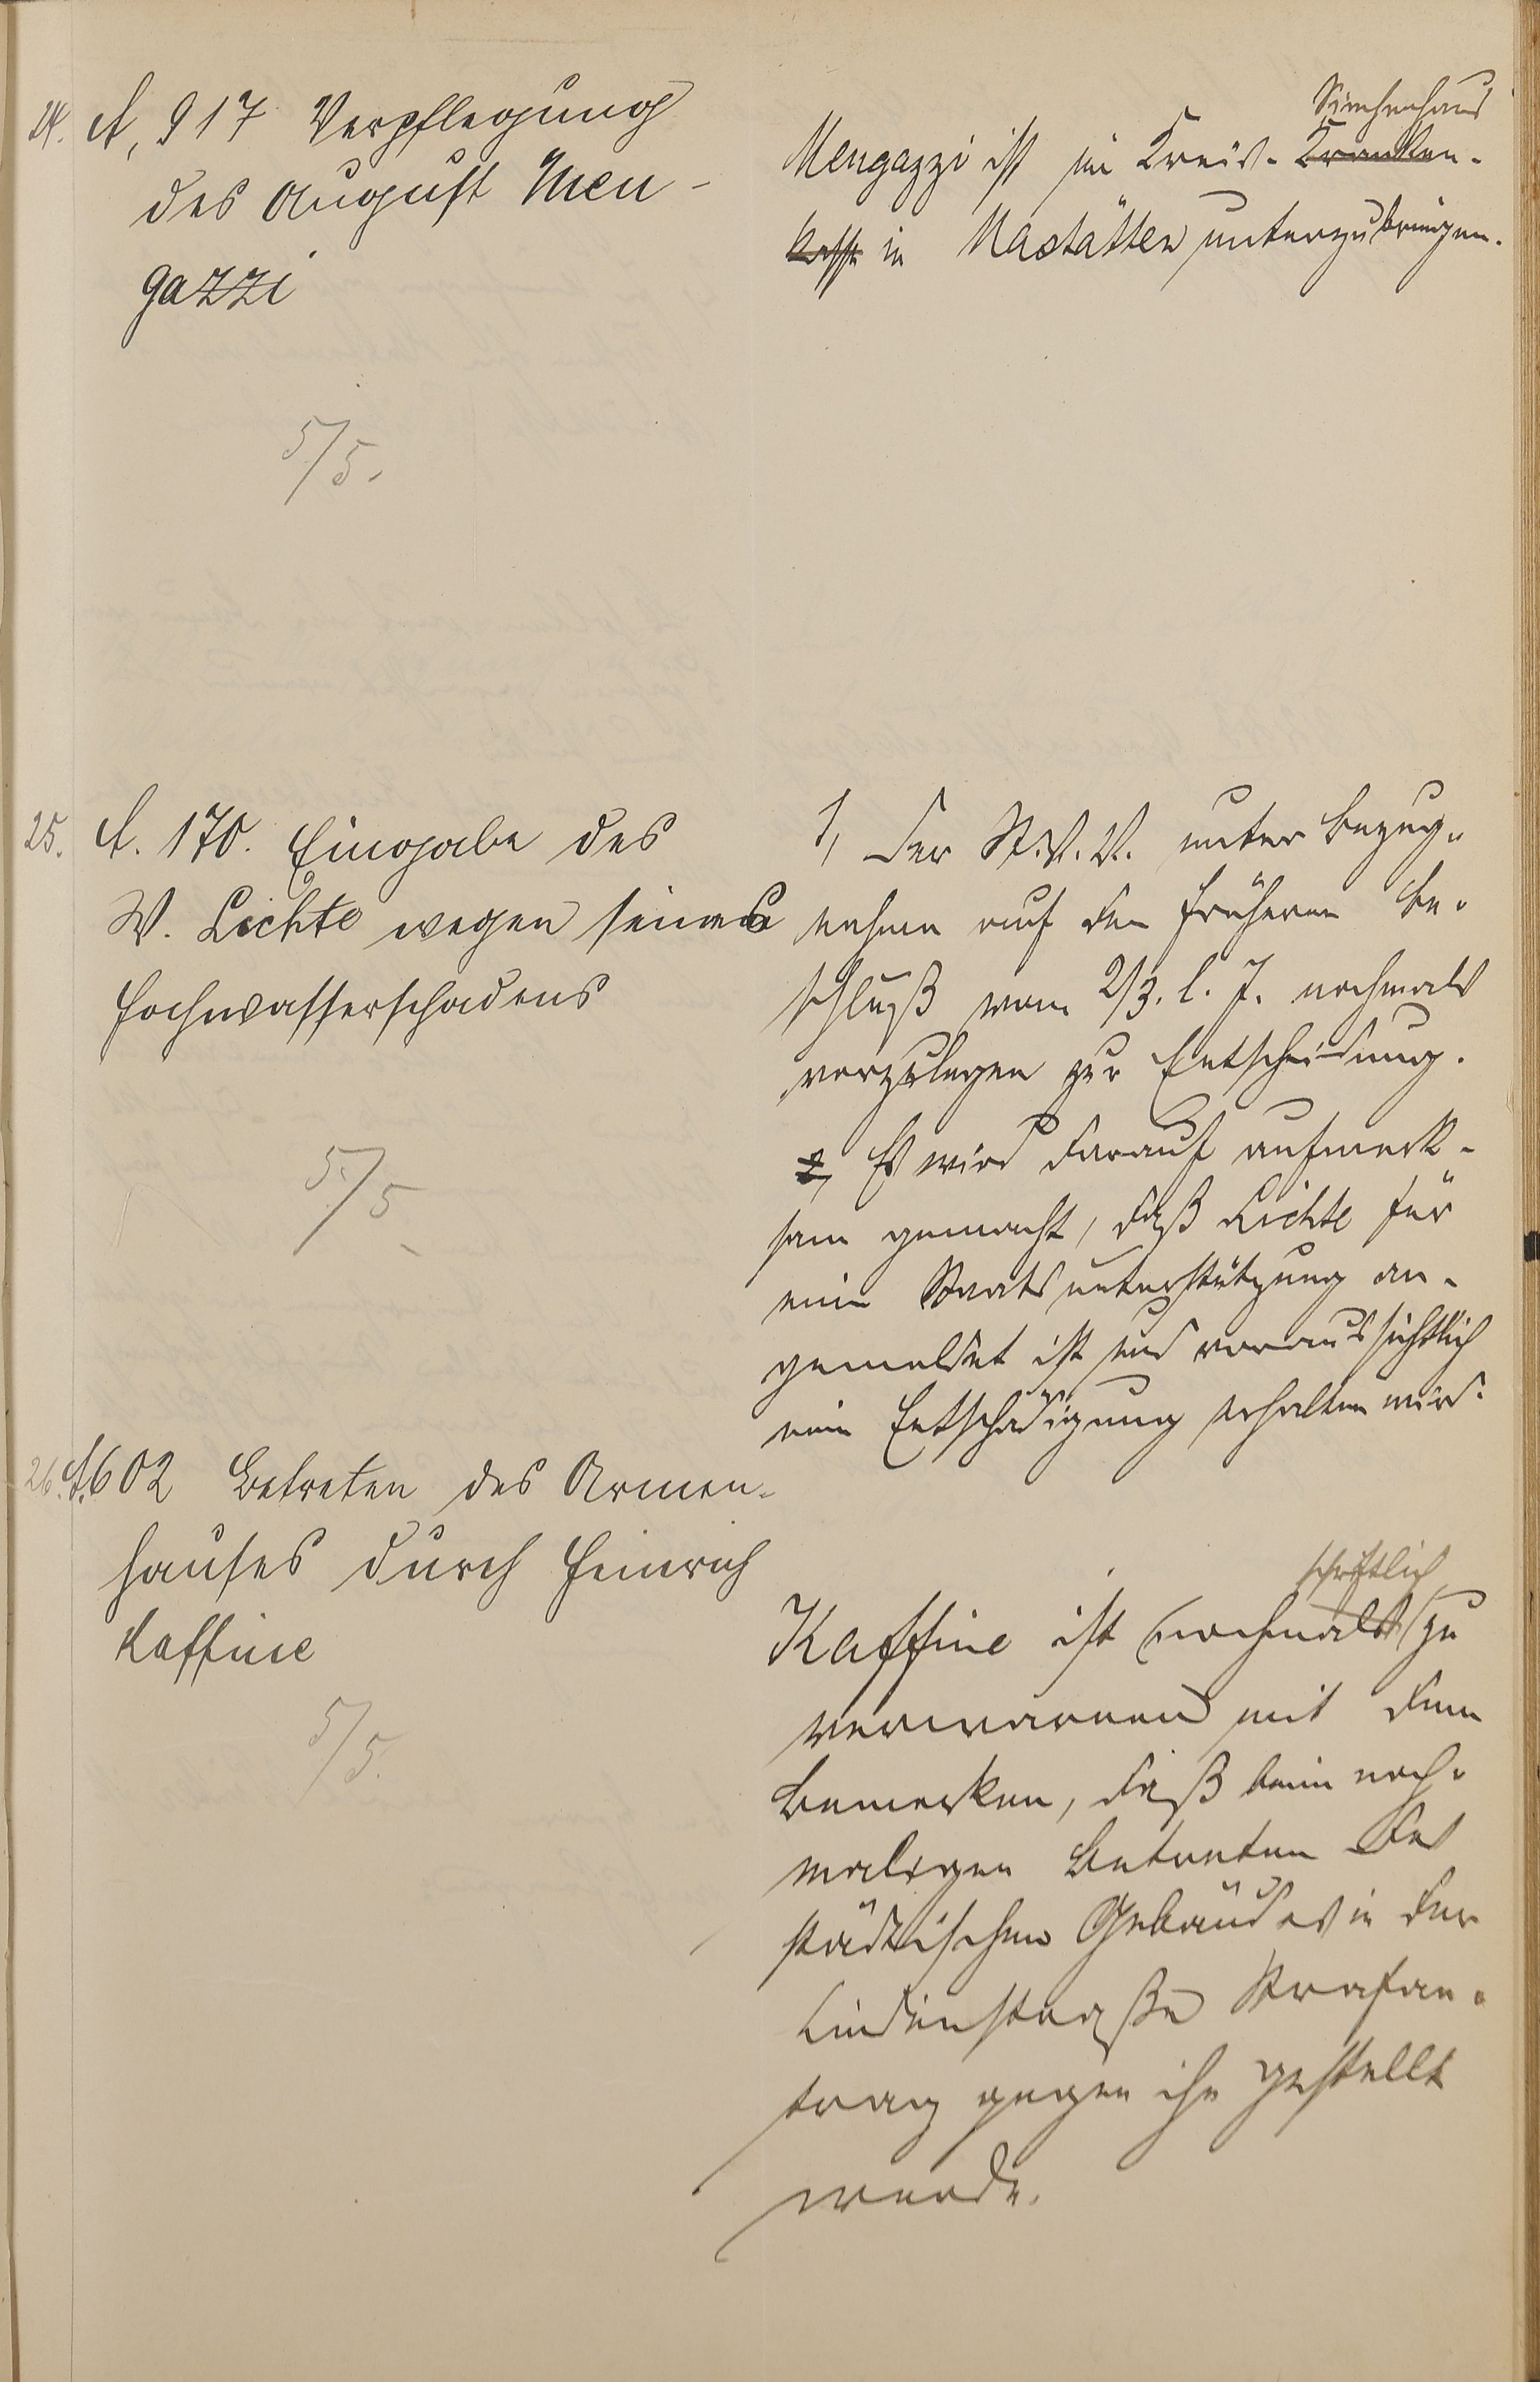 24. A, 917 Verpflegung
des August Men-
gazzi
5/5.
Siechenhaus
Mengazzi ist im Kreis-Kranken-
kasse in Nastätten unterzubringen.
25. A. 170. Eingabe des
W. Lichte wegen seines
Hochwasserschadens
5/5
1, Der St.V.V. unter Bezug-
nahme auf den früheren Be-
schluß vom 2/3. l. J. nochmals
vorzulegen zur Entscheidung.
2, Es wird darauf aufmerk-
sam gemacht, daß Lichte für
eine Staatsunterstützung an-
gemeldet ist und voraussichtlich
eine Entschädigung erhalten wird.
26. A. 602 Betreten des Armen-
hauses durch Heinrich
Kaffine
5/5.
schriftlich
Kaffine ist (nochmals) zu
verwarnen mit dem
Bemerken, daß beim noch-
maligen Betreten des
städtischen Gebäudes in der
Lindenstraße Strafan-
trag gegen ihn gestellt
werde.